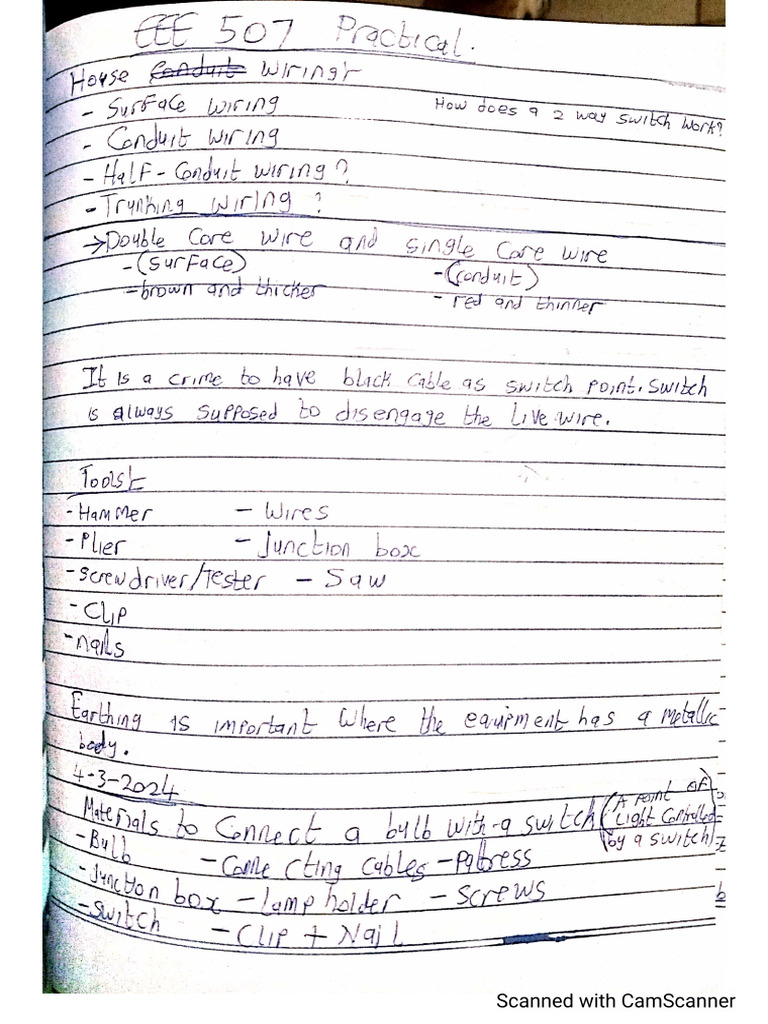 EEE 507 Practical.
House Conduit Wiring
- Surface wiring
How does a 2 way switch work?
- Conduit wiring
- Half-Conduit wiring?
- Trunking wiring?
→ Double Core wire and single core wire
- (surface)
- (conduit)
- brown and thicker
- red and thinner
It is a crime to have black cable as switch point. Switch
is always supposed to disengage the Live wire.
Tools
- Hammer - Wires
- Plier - Junction box
- Screwdriver/Tester - Saw
- Clip
- nails
Earthing is important Where the equipment has a metallic
body.
4-3-2024
Materials to Connect a bulb with a switch (A point of Light Controlled by a switch)
- Bulb - Connecting cables - Pattress
- Junction box - Lamp holder - Screws
- Switch - Clip + Nail
Scanned with CamScanner